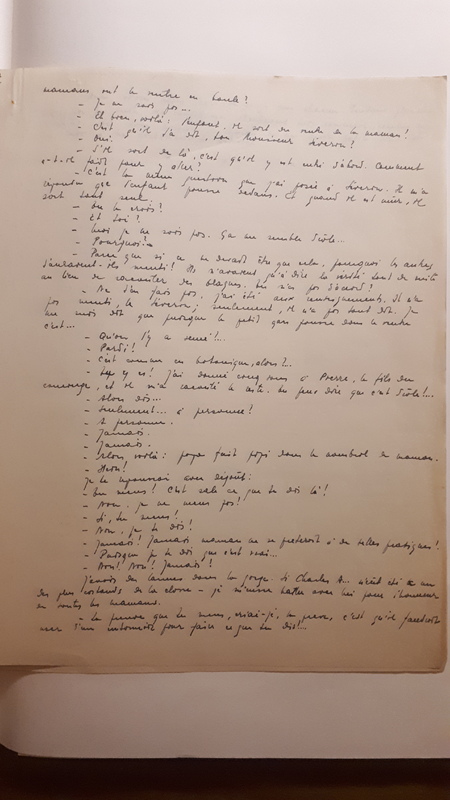 mamans ont le ventre en boule ?
- Je ne sais pas...
- Eh bien, voilà : l'enfant, il sort du ventre de la maman !
- C'est ce qu'il t'a dit, ton Monsieur Siveron !
- Oui.
- S'il sort de là, c'est qu'il y est entré d'abord. Comment
a-t-il fait pour y aller ?
- C'est la même question que j'ai posée à Siveron. Il m'a
répondu que l'enfant pousse dedans. Et quand il est mûr, il
sort tout seul.
- Tu le crois ?
- Et toi ?
- Moi je ne sais pas. Ça me semble drôle...
- Pourquoi ?
- Parce que si ce ne devait être que cela, pourquoi les autres
t'auraient-ils menti ? Ils n'avaient qu'à dire la vérité tout de suite
au lieu de raconter des blagues, tu n'es pas d'accord ?
- Ne t'en fais pas, j'ai été aux renseignements. Il n'a
pas menti, le Siveron, seulement, il n'a pas tout dit. Je
me suis dit que puisque le petit gars pousse dans le ventre
c'est...
- Qu'on l'y a semé !...
- Pardi !
- C'est comme en botanique, alors ?...
- Tu y es ! J'ai donné cinq sous à Pierre, le fils du
et il m'a raconté le reste. Tu peux dire que c'est drôle !...
- Alors dis...
- Seulement... à personne !
- A personne.
- Jamais.
- Jamais.
- Alors voilà : papa fait pipi dans le nombril de maman.
- Hein !
Je le repoussai avec dégoût :
- Tu mens ! C'est sale ce que tu dis là !
- Non, je ne mens pas !
- Si, tu mens !
- Non, je te dis !
- Jamais ! Jamais maman ne se prêterait à de telles pratiques !
- Puisque je te dis que c'est vrai...
- Non ! Non ! Jamais !
J'avais des larmes dans la gorge. Si Charles A... n'eût été un
des plus costauds de la classe - je m'serais battu avec lui pour l'honneur
de toutes les mamans.
- La preuve que tu mens, criai-je, la preuve, c'est qu'il faudrait
avoir l'un pour faire ce que tu dis !...